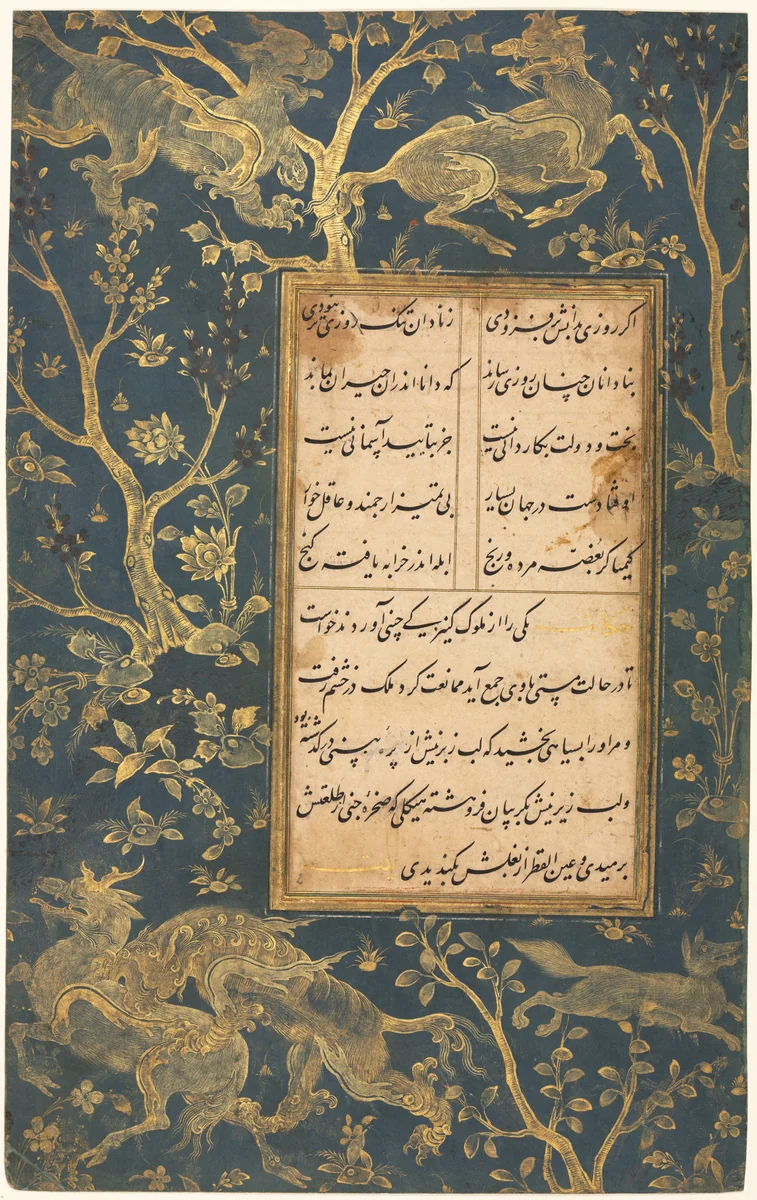 اکر روزی بدانش بر فزودی زنادان تنک روزی تر نبودی
بنادانان چنان روزی رساند که دانا اندران حیران بماند
بخت و دولت بکاردانی نیست جز بتایید آسمانی نیست
اوفتادست در جهان بسیار بی تمیز ارجمند و عاقل خوار
کیمیاکر بغصه مرده و رنج ابله اندر خرابه یافته کنج
یکی را از ملوک کنیزکی چینی آوردند خواست
تا در حالت مستی با وی جمع آید ممانعت کرد ملک در خشم رفت
و مر او را بسیاهی بخشید که لب زبرینش از پرهٔ بینی در کذشته بود
ولب زیرینش بکریبان فرو هشته هیکلی که صخرهٔ جنی از طلعتش
برمیدی و عین القطر از بغلش بکندیدی